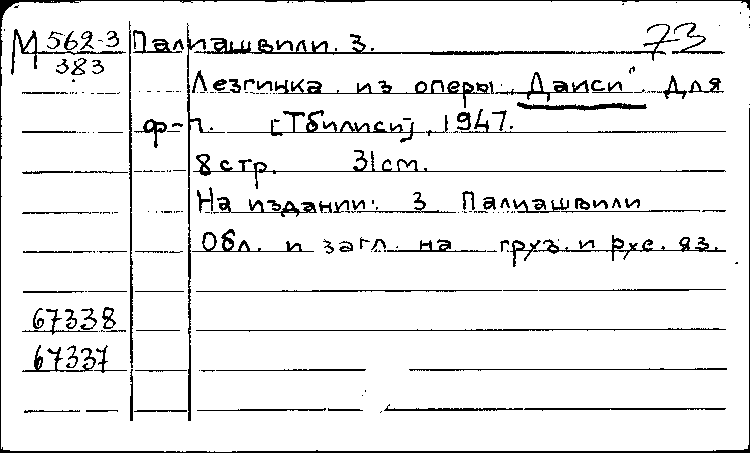 М 562-3 Палиашвили. З. 73
383
Лезгинка из оперы „Даиси" Для
ф-п. [Тбилиси], 1947.
8 стр. 31 см.
На издании: З Палиашвили
Обл. и загл. на груз. и рус. яз.
67338
67337